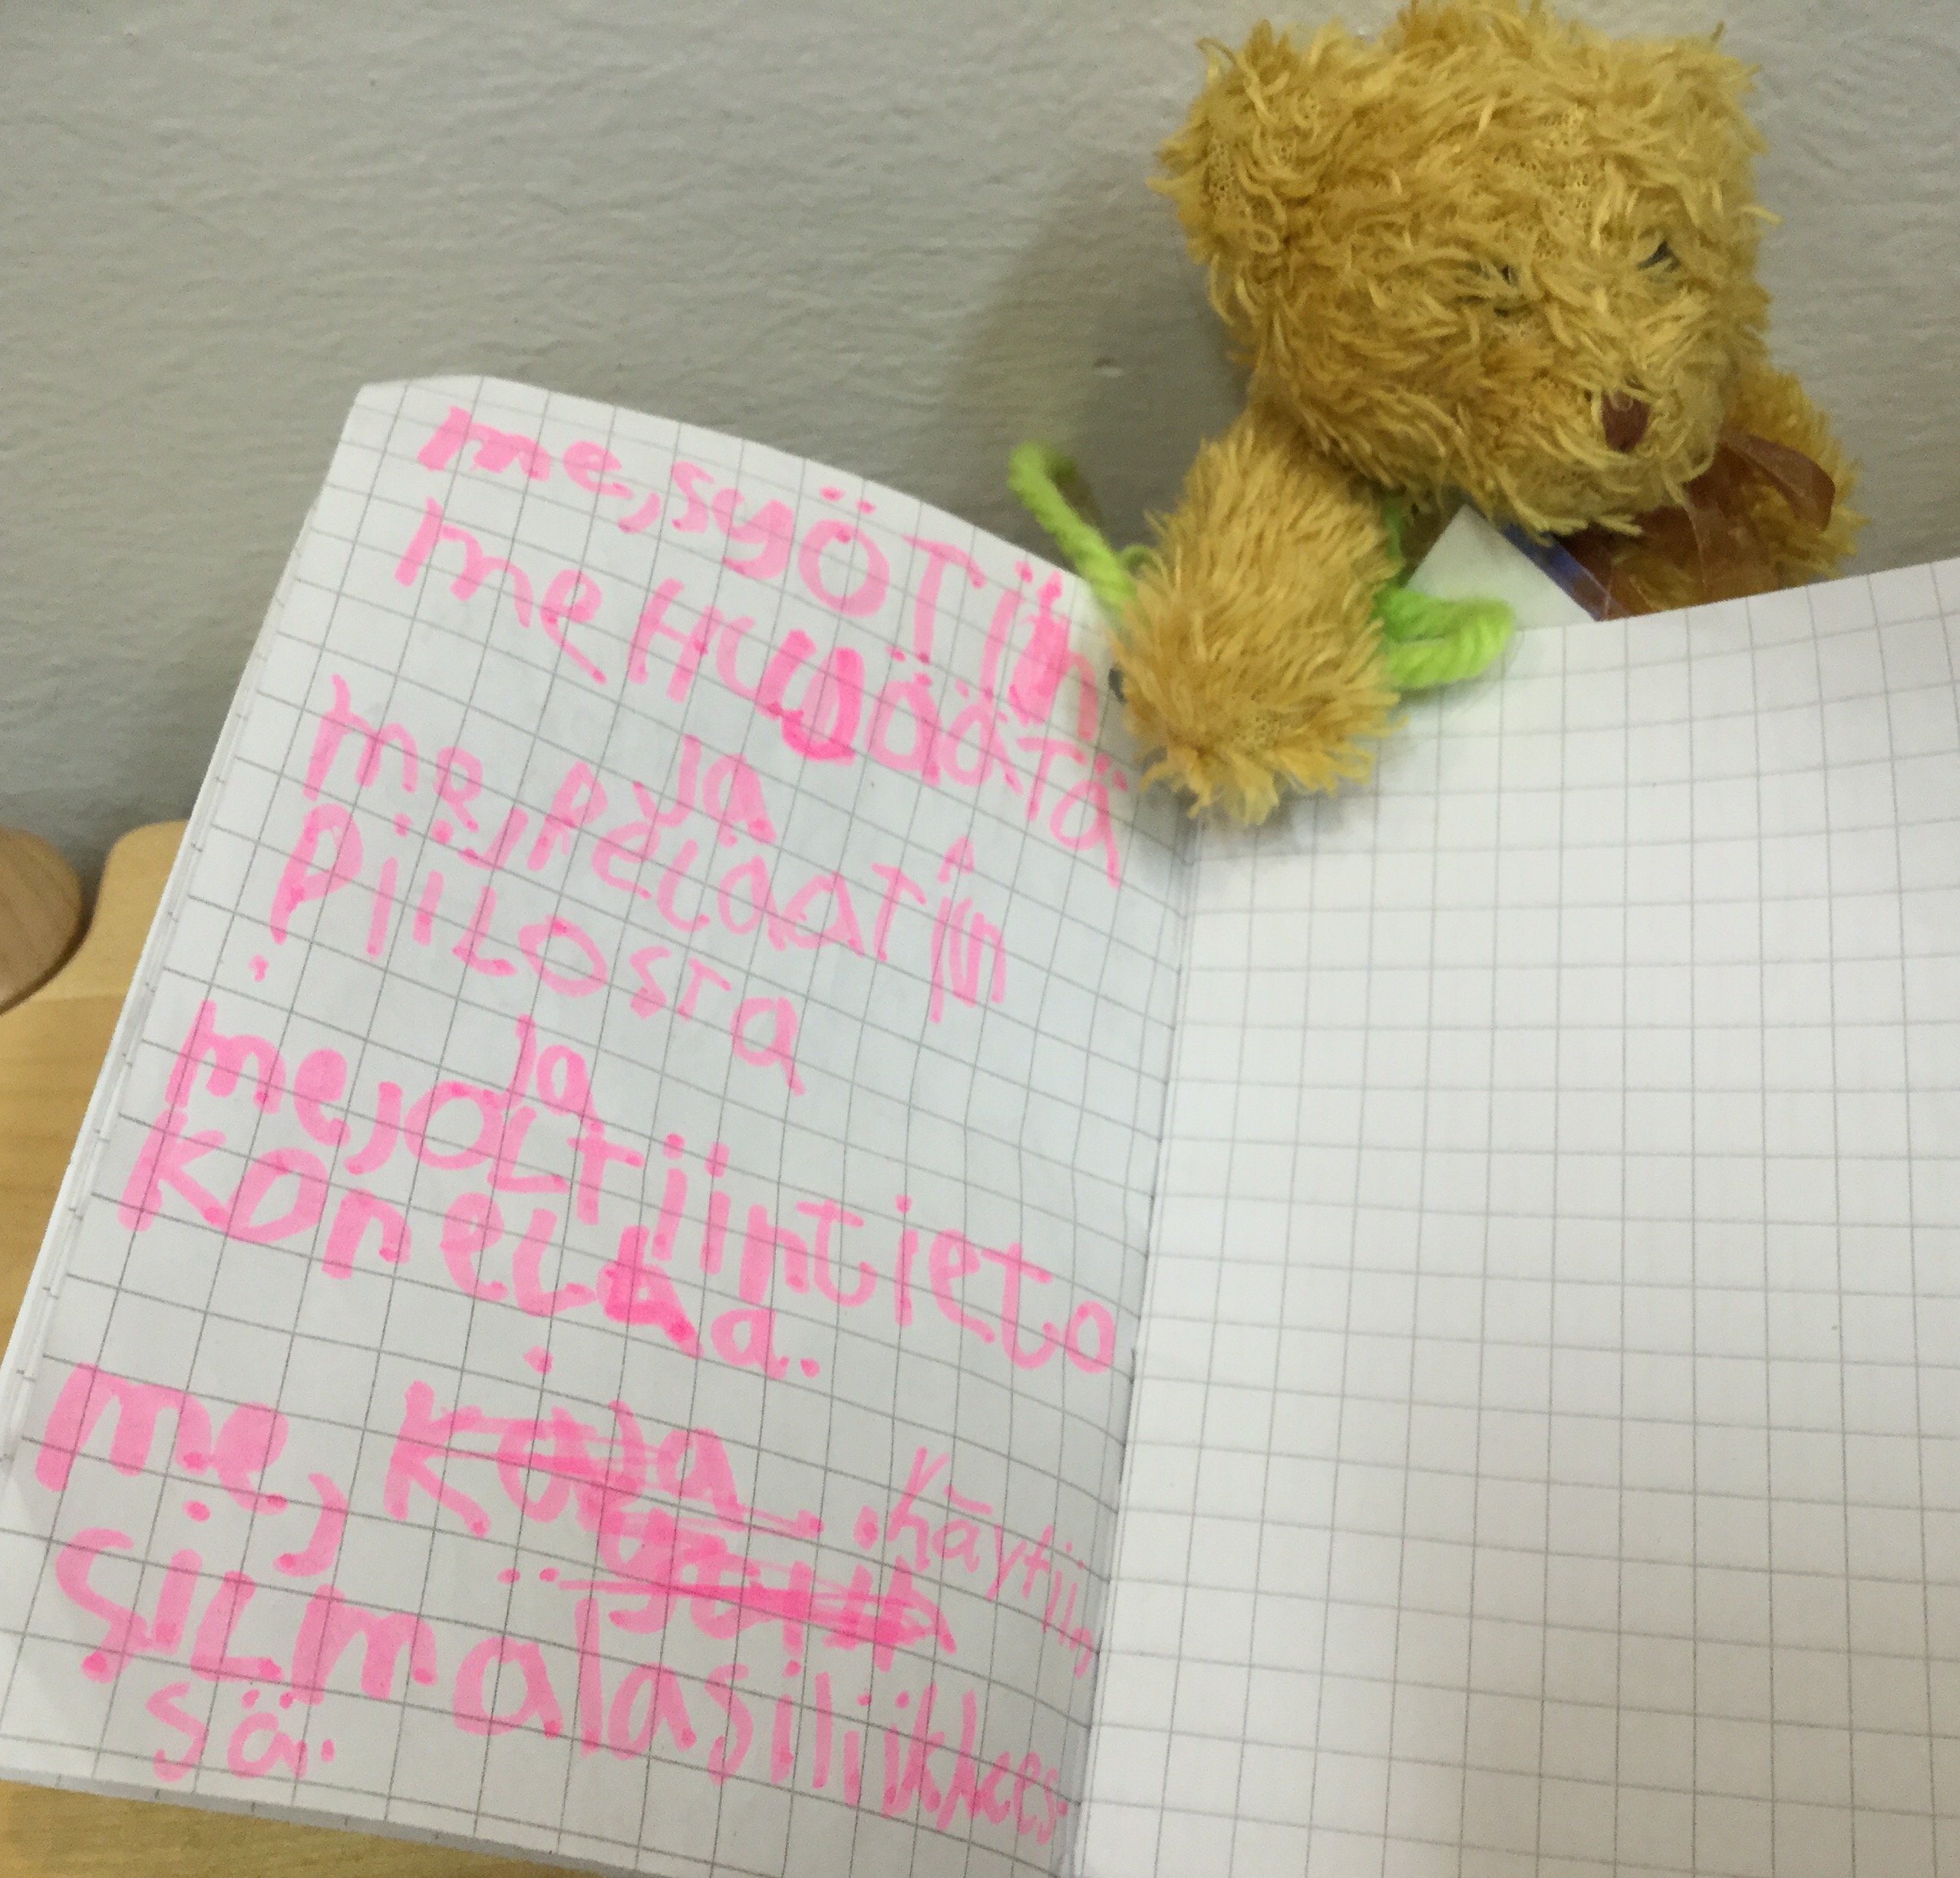 me, syötiin
me Hyvöätä
ja
me, pelaatiin
piilosta
ja
me, oltiin tieto
konella.
me, ja käytiin,
silmälasiliikkees-
sä.